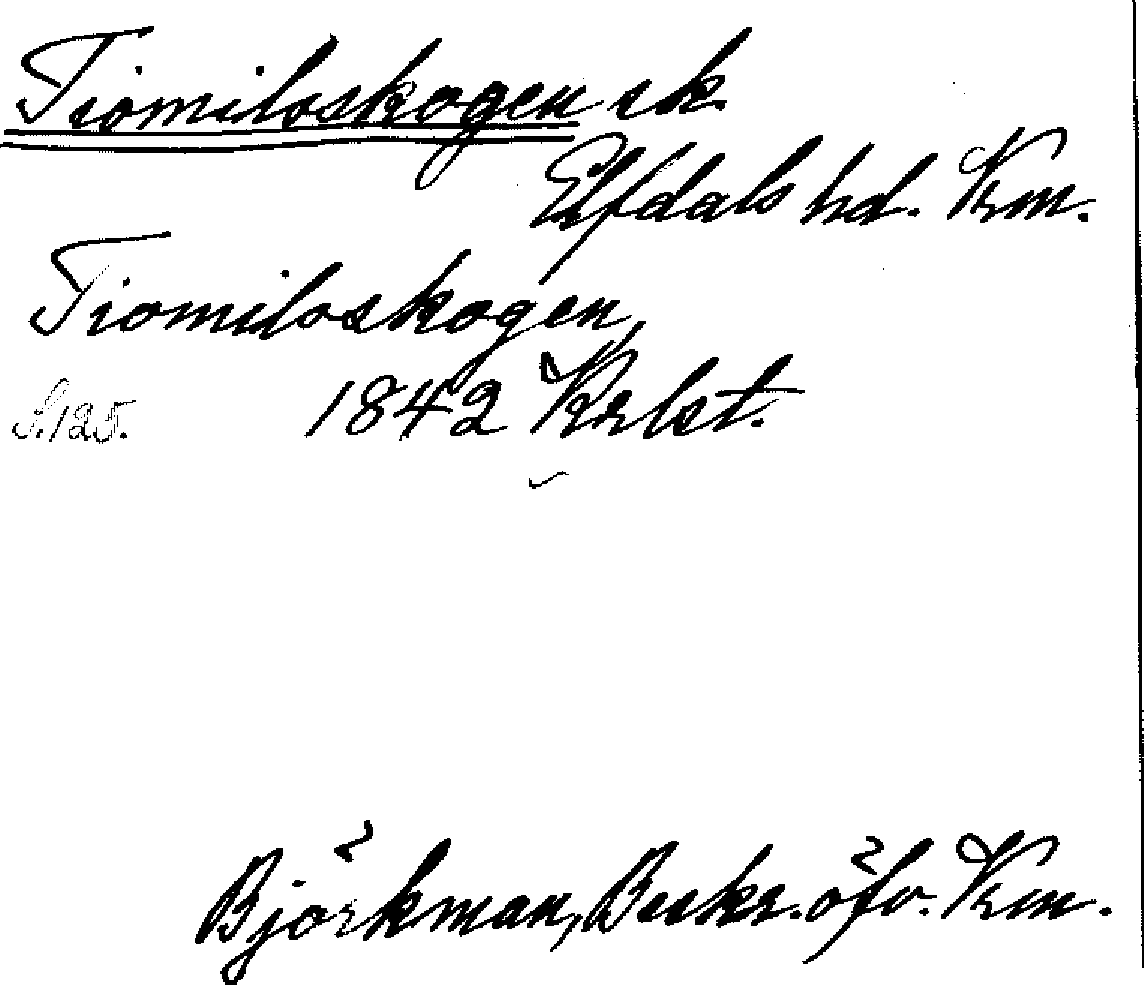 Tiomiloskogen sk.
Elfdals hd. Krm.
Tiomiloskogen,
S. 125. 1842 Krlst.
Björkman, Beskr. öfv. Krm.